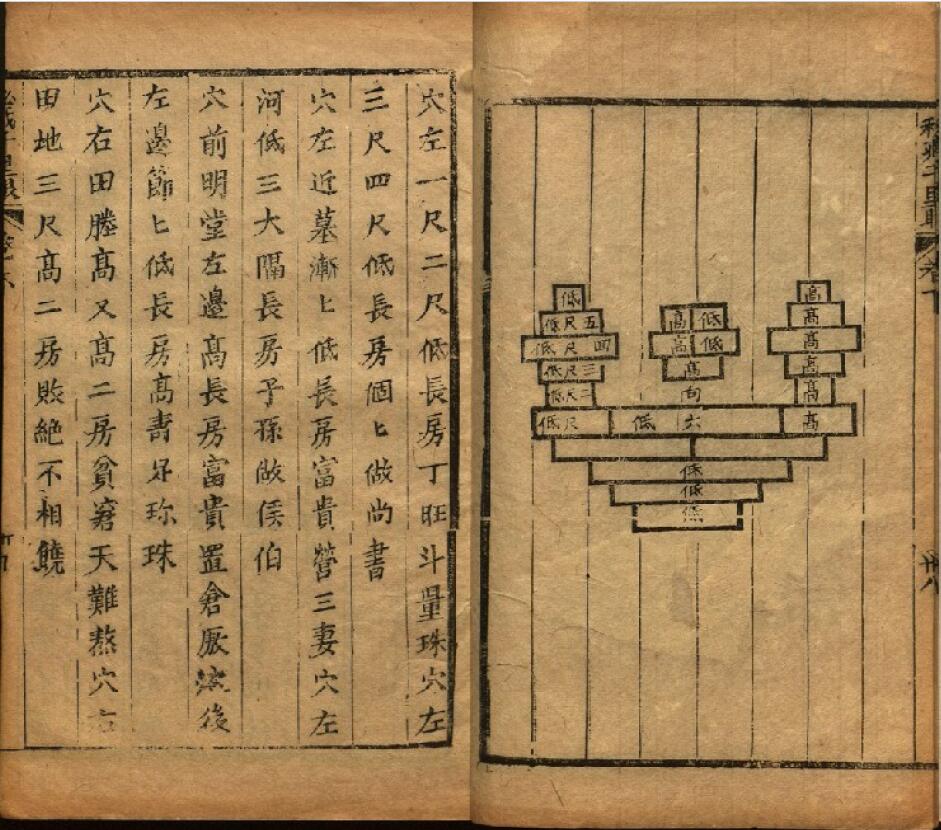 低
低尺五
低尺四
低尺三
低尺二
低尺
高低
高低
高
向
低六
高
高
高
高
高
高
低
低
低
卅八
穴左一尺二尺低長房丁旺斗量珠穴左
三尺四尺低長房個匕做尚書
穴左近墓漸匕低長房富貴營三妻穴左
河低三大隔長房子孫做侯伯
穴前明堂左邊高長房富貴置倉厫後
左邊節匕低長房高壽足珍珠
穴右田塍高又高二房貧窘天難熬穴右
田地三尺高二房敗絶不相饒